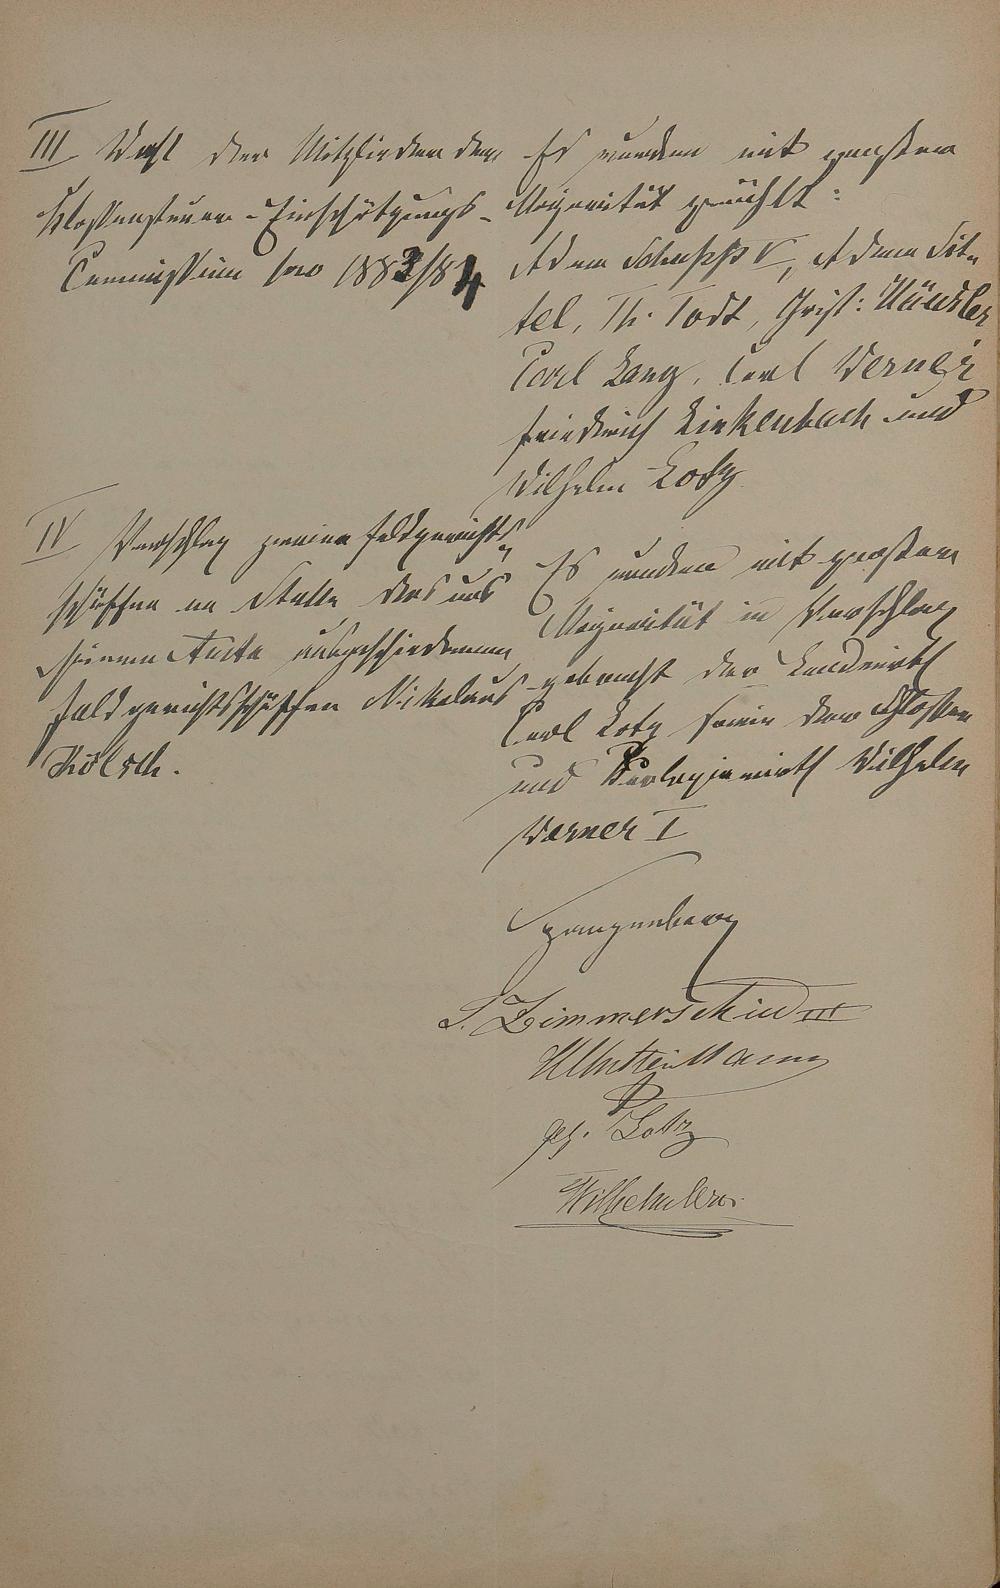 III Wahl der Mitglieder der
Klassensteuer-Einschätzungs-
Commission pro 1883/84
Es wurden mit grosser
Majorität gewählt:
Adam Schupp V, Adam Sit-
tel, Th. Todt, Christ:
Carl Lang, Carl Werner
Friedrich Linkenbach und
Wilhelm Lotz
IV Vorschlag zweier Feldgerichts-
schöffen an Stelle des aus
seinem Amte ausgeschiedenen
Feldgerichtsschöffen Nikolaus
Kölsch.
Es wurden mit grosser
Majorität in Vorschlag
gebracht der Landwirth
Carl Lotz sowie der Schlosser
und wirth Wilhelm
Werner I
Spangenberg
Zimmerschied III
gez. Lotz